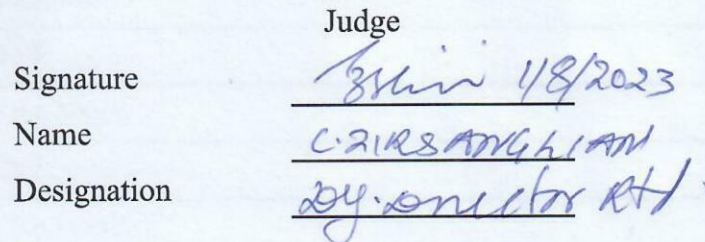 Judge
Signature 1/8/2023
Name C. ZIRSANGLIAN
Designation Dy. Director Rtd